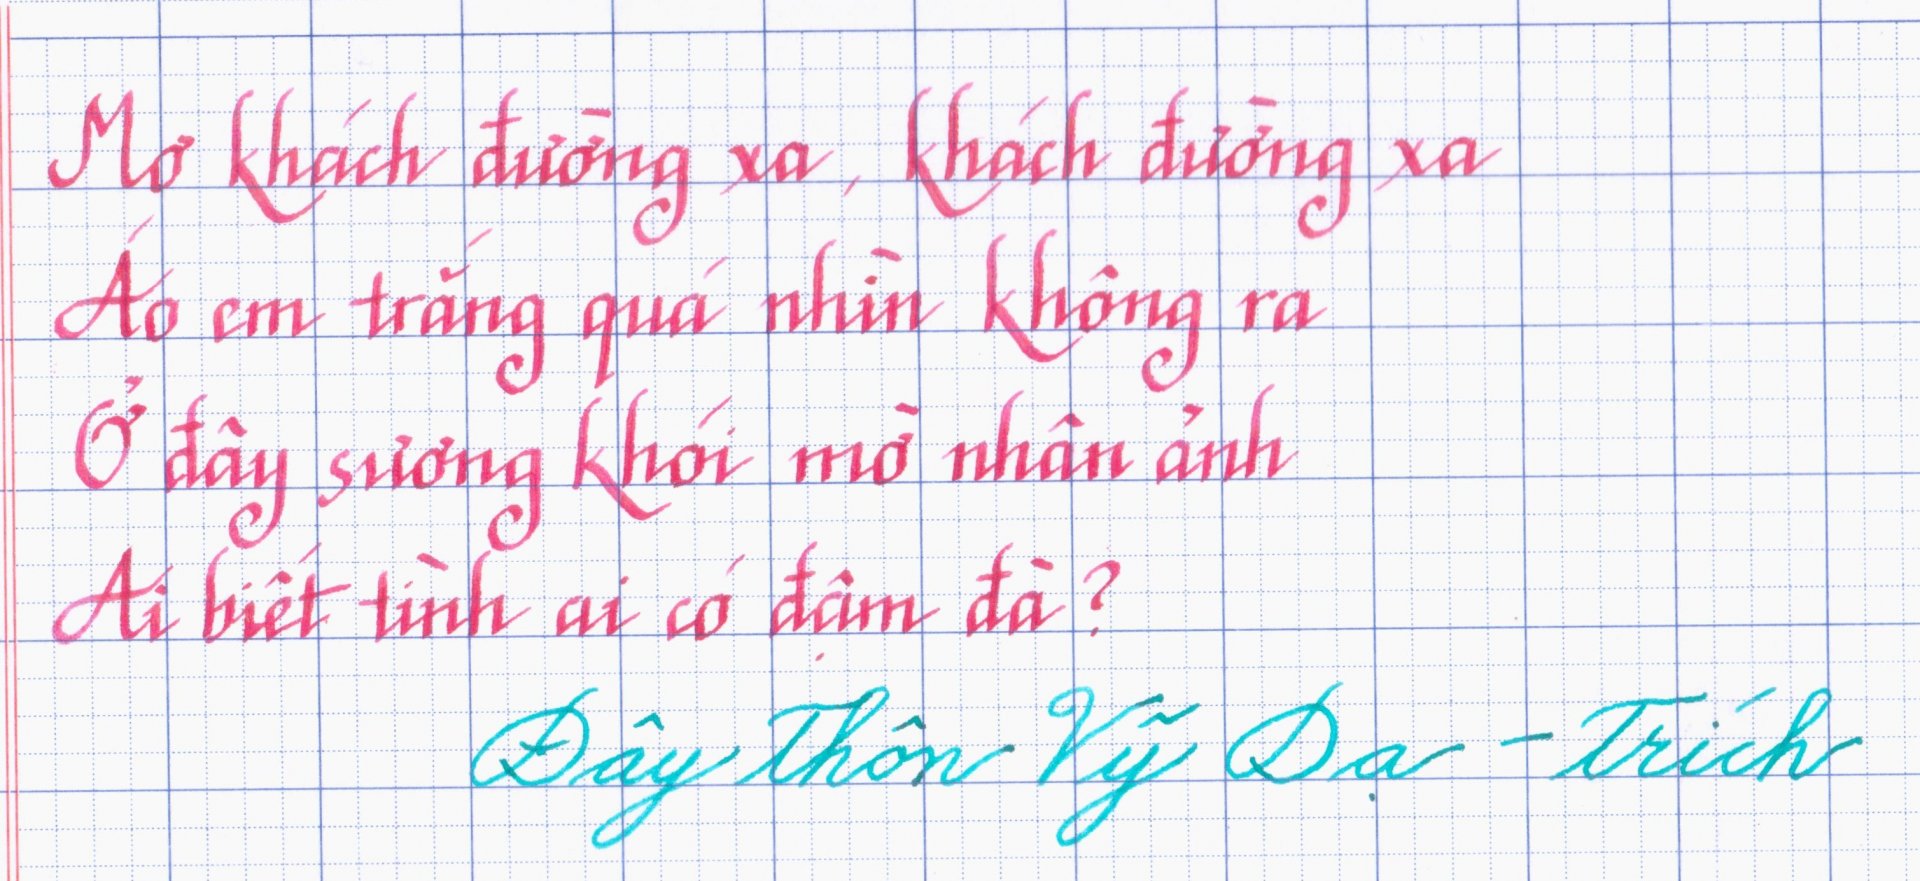 Mơ khách đường xa, khách đường xa
Áo em trắng quá nhìn không ra
Ở đây sương khói mờ nhân ảnh
Ai biết tình ai có đậm đà?
Đây Thôn Vỹ Dạ - Trích